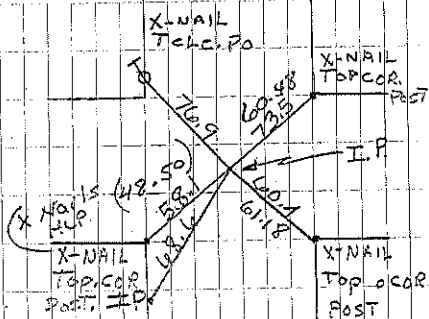 X-NAIL
TELE. PO
X-NAIL
TOP COR.
POST
76.9
60.48
73.5
I.P
(48.50)
58.
68.6
60.1
61.18
(X Nail is
UP
X-NAIL
TOP. COR
POST. I.P.
X-NAIL
TOP OCOR.
POST